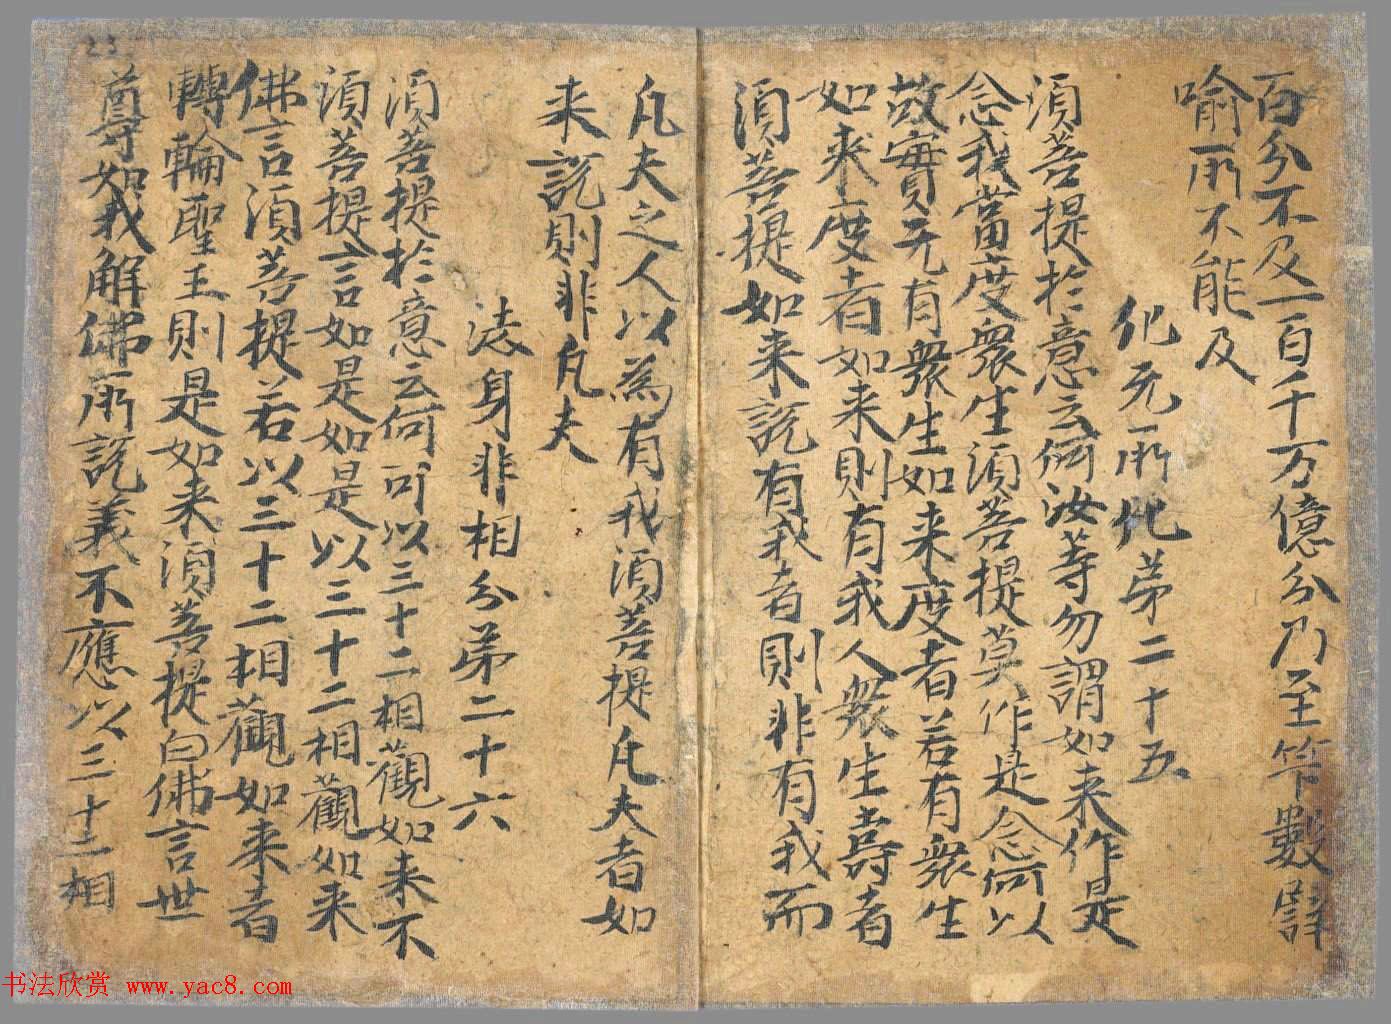 百分不及一百千万億分乃至筭數譬
喻所不能及
化无所化第二十五
須菩提於意云何汝等勿謂如来作是
念我當度衆生須菩提莫作是念何以
故實无有衆生如来度者若有衆生
如来度者如来則有我人衆生壽者
須菩提如来説有我者則非有我而
凡夫之人以為有我須菩提凡夫者如
来説則非凡夫
法身非相分第二十六
須菩提於意云何可以三十二相觀如来不
須菩提言如是如是以三十二相觀如来
佛言須菩提若以三十二相觀如来者
轉輪聖王則是如来須菩提白佛言世
尊如我解佛所説義不應以三十二相
23
书法欣赏 www.yac8.com